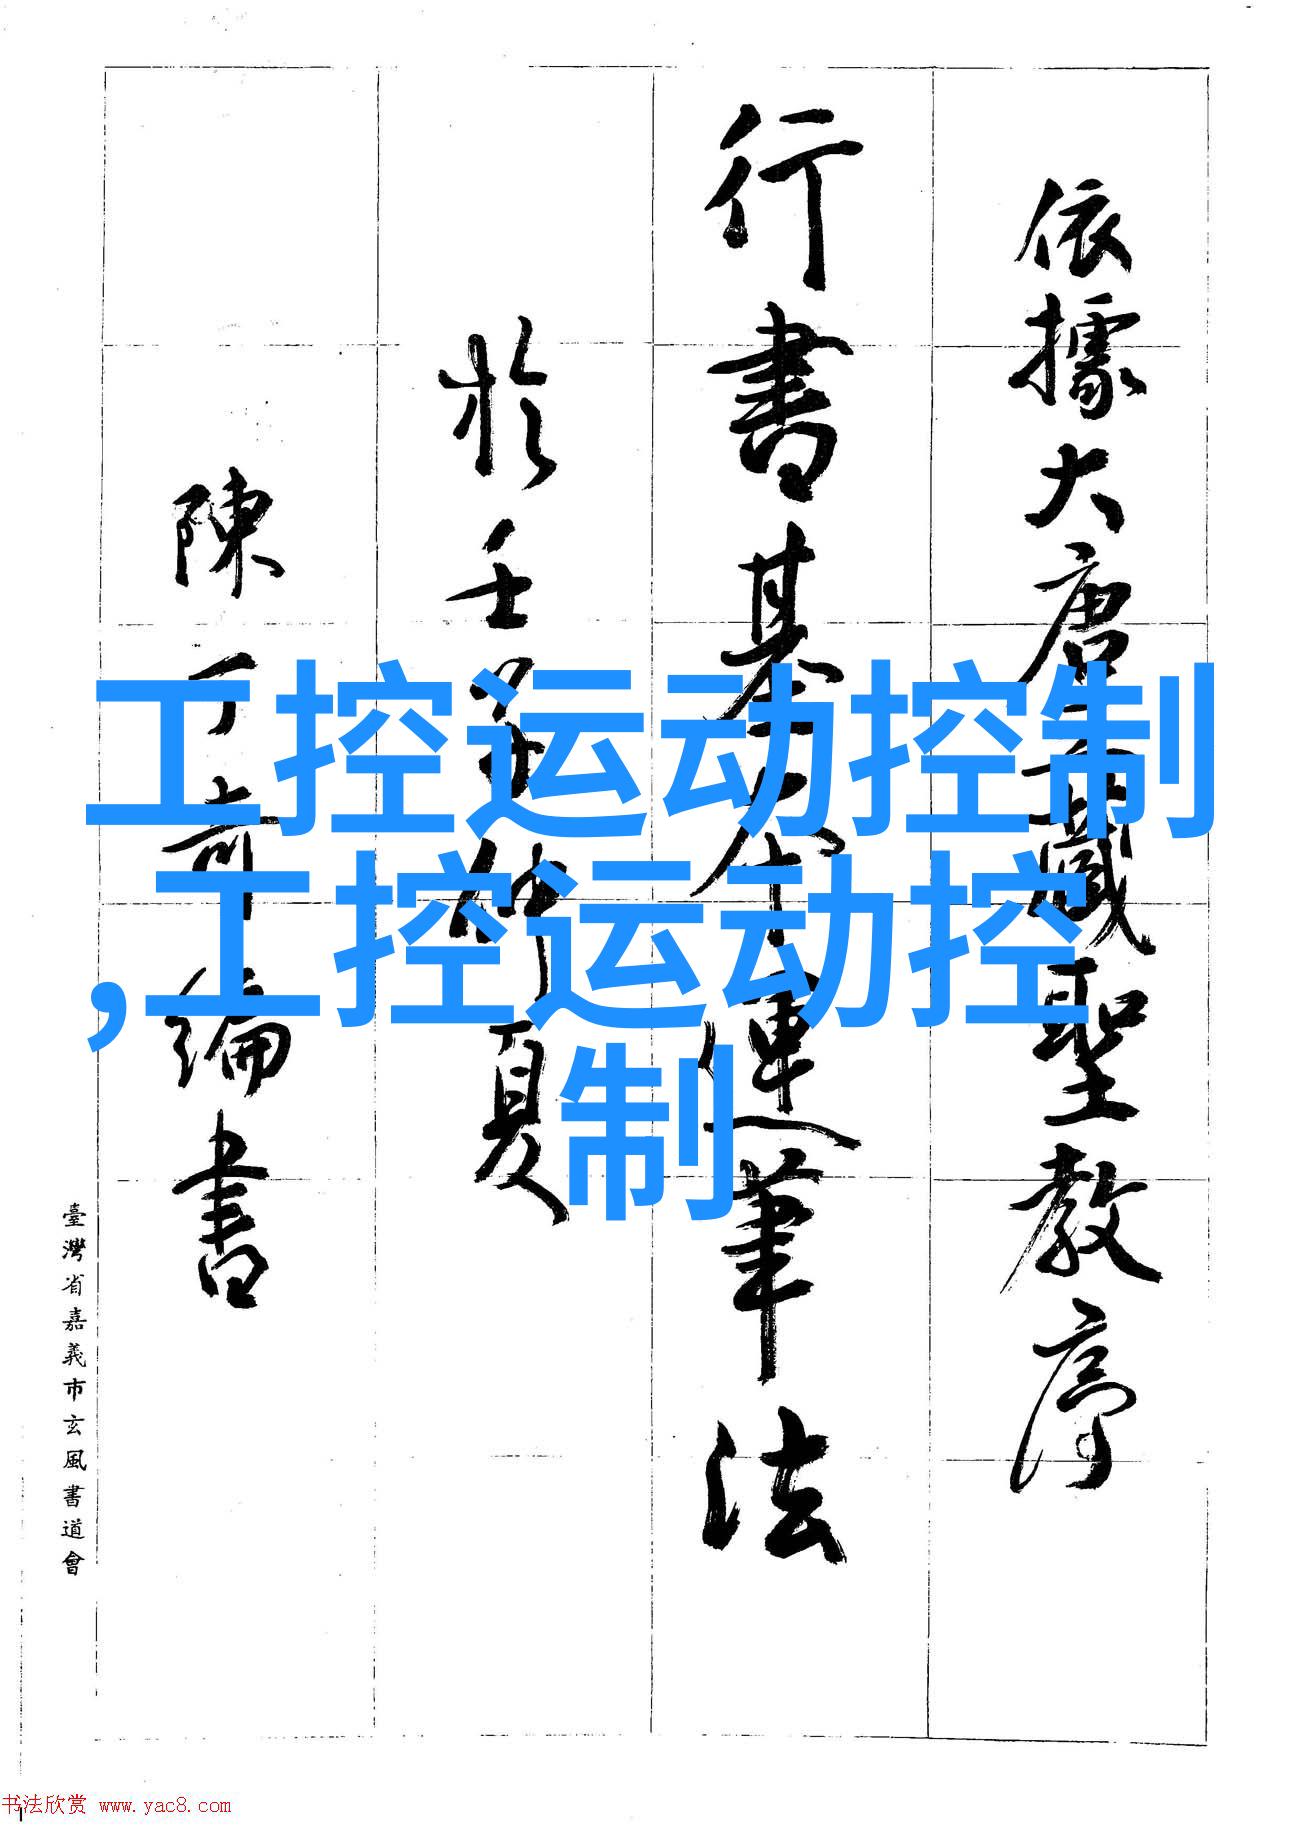 依據大唐三藏聖教序
行書基本運筆法
於壬
仲夏
陳丁奇編書
臺灣省嘉義市玄風書道會
工控运动控制
,工控运动控
制
书法欣赏 www.yac8.com
1